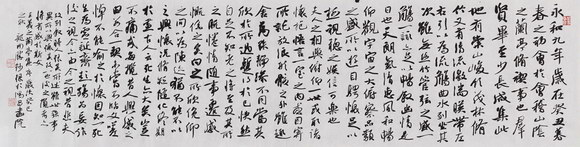 永和九年歲在癸丑暮
春之初會于會稽山陰
之蘭亭脩禊事也群
賢畢至少長咸集此
地有崇山峻領茂林脩
竹又有清流激湍映帶左
右引以為流觴曲水列坐其
次雖無絲竹管弦之盛一
觴一詠亦足以暢敘幽情是
日也天朗氣清惠風和暢
仰觀宇宙之大俯察品類
之盛所以遊目騁懷足以
極視聽之娛信可樂也夫
人之相與俯仰一世或取諸
懷抱悟言一室之內或因寄
所託放浪形骸之外雖趣
舍萬殊靜躁不同當其欣
於所遇暫得於己快然
自足不知老之將至及其所
之既倦情隨事遷感
慨係之矣向之所欣俛仰
之間以為陳迹猶不能不以
之興懷況脩短隨化終期
於盡古人云死生亦大矣豈
不痛哉每攬昔人興感之
由若合一契未嘗不臨文嗟
悼不能喻之於懷固知一死
生為虛誕齊彭殤為妄作